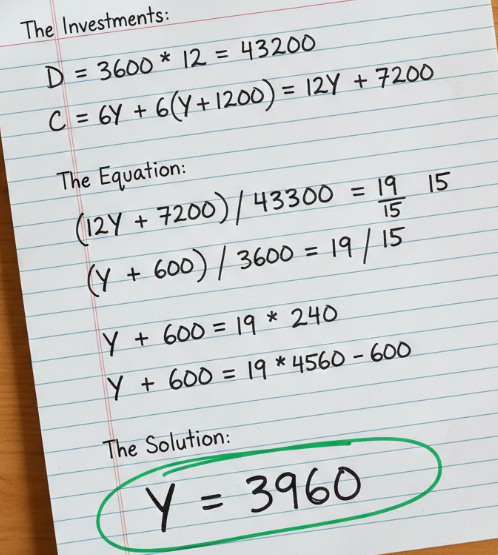 The Investments:
D = 3600 * 12 = 43200
C = 6Y + 6(Y+1200) = 12Y + 7200
The Equation:
(12Y + 7200) / 43300 = 19/15 15
(Y + 600) / 3600 = 19 / 15
Y + 600 = 19 * 240
Y + 600 = 19 * 4560 - 600
The Solution:
Y = 3960